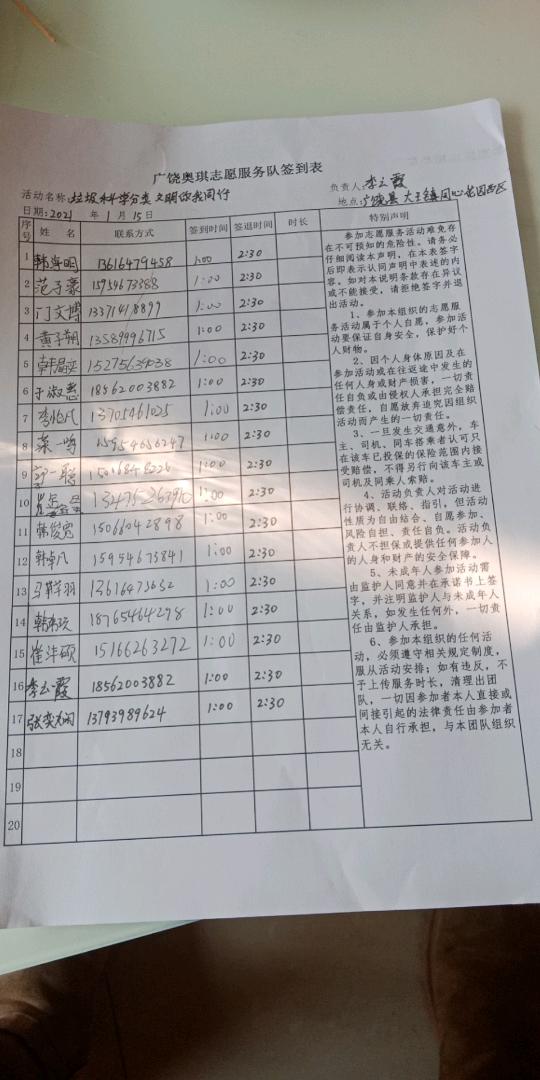 广饶奥琪志愿服务队签到表
活动名称:垃圾科学分类 文明你我同行 负责人:李云霞
日期:2021 年 1 月 15日 地点:广饶县大王镇同心花园西区
序号 姓 名 联系方式 签到时间 签退时间 时长 特别声明
1 13616479458 1:00 2:30
2 范子豪 15954673888 1:00 2:30
3 门文博 13371418899 1:00 2:30
4 黄子朔 13589996715 1:00 2:30
5 韩晶奕 15275639038 1:00 2:30
6 于淑惠 18562003882 1:00 2:30
7 李怡凡 13705461025 1:00 2:30
8 荣一鸣 15954656247 1:00 2:30
9 1:00 2:30
10 1:00 2:30
11 韩俊宽 15066042898 1:00 2:30
12 韩卓凡 15954675841 1:00 2:30
13 1:00 2:30
14 18765464298 1:00 2:30
15 15166263272 1:00 2:30
16 李云霞 18562003882 1:00 2:30
17 13793989624 1:00 2:30
18
19
20
参加志愿服务活动难免存
在不可预知的危险性。请务必
仔细阅读本声明,在本表签字
后即表示认同声明中表述的内
容。如对本说明条款存在异议
或不能接受,请拒绝签字并退
出活动。
1、参加本组织的志愿服
务活动属于个人自愿,参加活
动要保证自身安全,保护好个
人财物。
2、因个人身体原因及在
参加活动或在往返途中发生的
任何人身或财产损害,一切责
任自负或由侵权人承担完全赔
偿责任,自愿放弃追究因组织
活动而产生的一切责任。
3、一旦发生交通意外,车
主、司机、同车搭乘者认可只
在该车已投保的保险范围内接
受赔偿,不得另行向该车主或
司机及同乘人索赔。
4、活动负责人对活动进
行协调、联络、指引,但活动
性质为自由结合、自愿参加、
风险自担、责任自负。活动负
责人不担保或提供任何参加人
的人身和财产的安全保障。
5、未成年人参加活动需
由监护人同意并在承诺书上签
字,并注明监护人与未成年人
关系,如发生任何外,一切责
任由监护人承担。
6、参加本组织的任何活
动,必须遵守相关规定制度,
服从活动安排;如有违反,不
予上传服务时长,清理出团
队,一切因参加者本人直接或
间接引起的法律责任由参加者
本人自行承担,与本团队组织
无关。